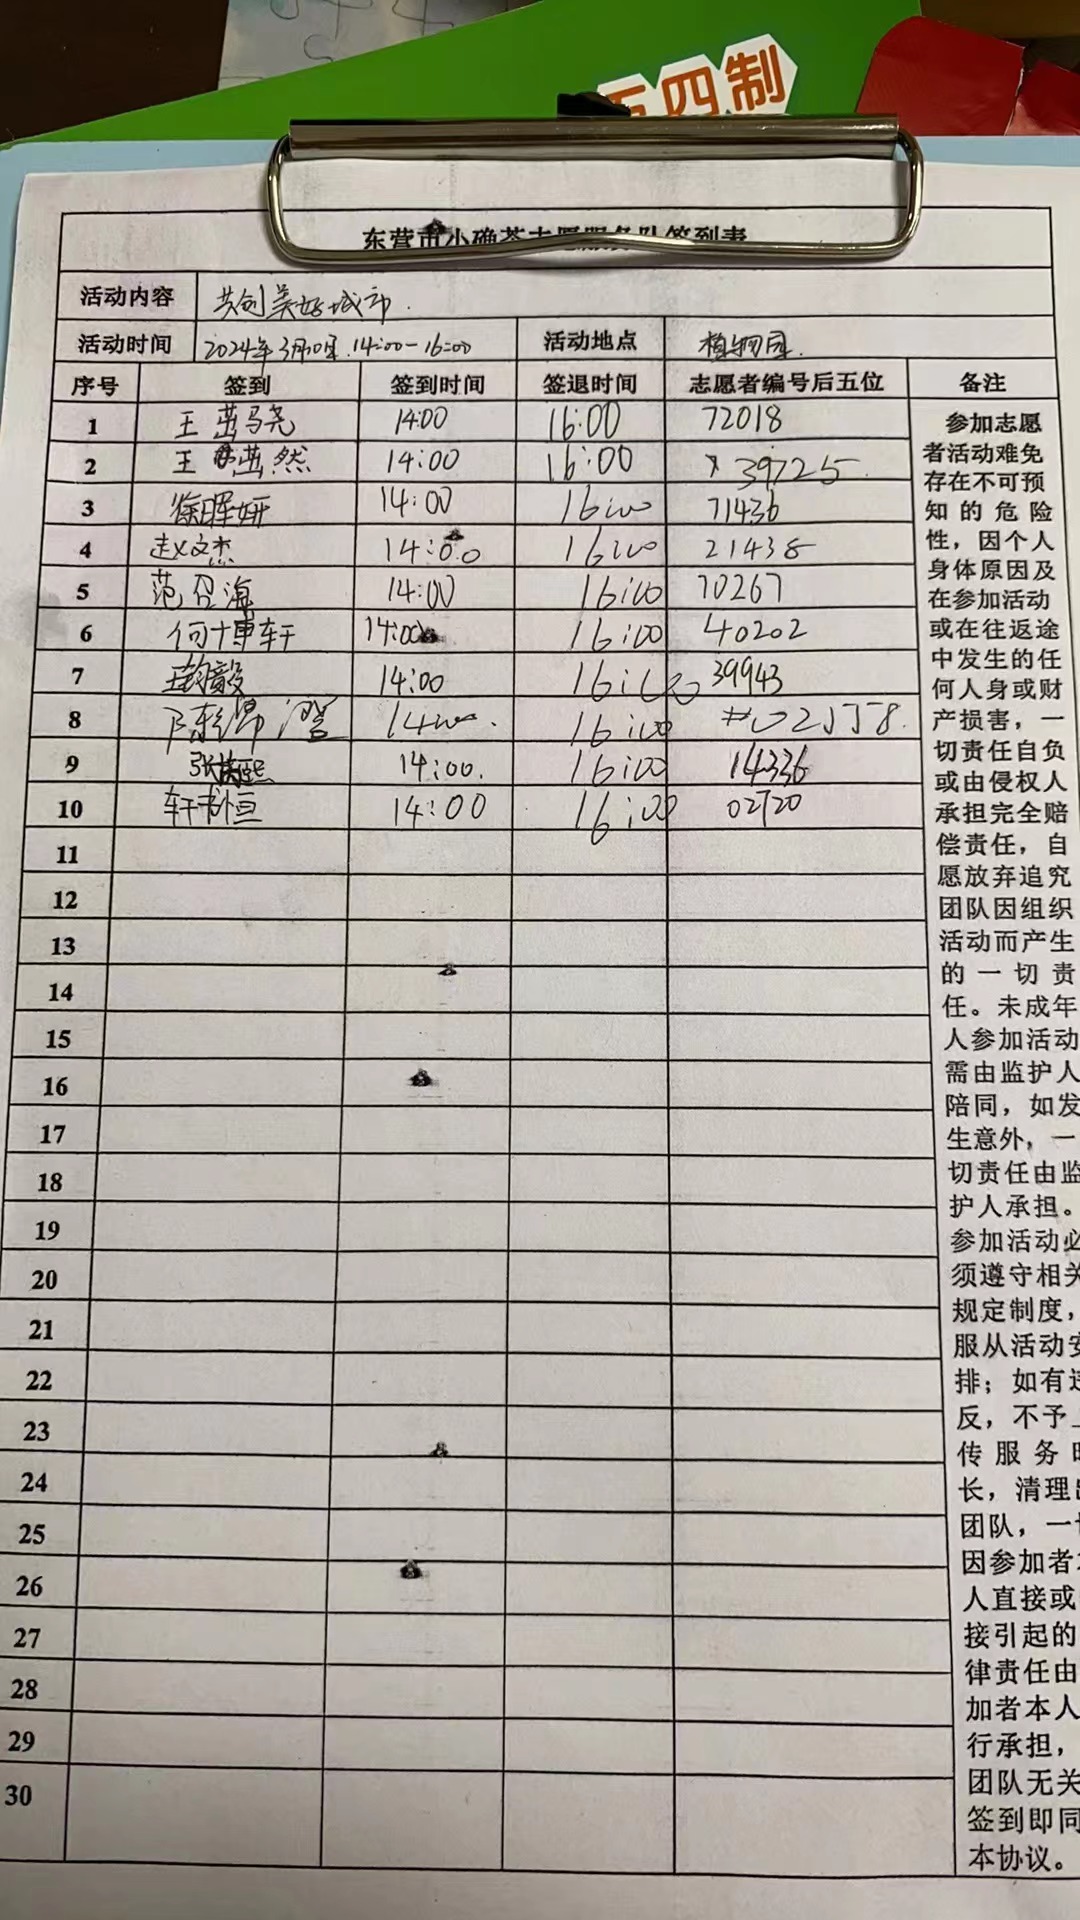 四制
东营市小确茶志愿服务队签到表
活动内容 共创美好城市.
活动时间 2024年3月10日.14:00-16:00 活动地点 植物园.
序号 签到 签到时间 签退时间 志愿者编号后五位 备注
1 王茁骁 14:00 16:00 72018
2 王茁然 14:00 16:00 39725
3 徐晖妍 14:00 16:00 71436
4 赵文杰 14:00 16:00 21438
5 范召海 14:00 16:00 70267
6 何博轩 14:00 16:00 40202
7 14:00 16:00 39943
8 14:00 16:00
9 14:00. 16:00 14336
10 14:00 16:00 02720
11
12
13
14
15
16
17
18
19
20
21
22
23
24
25
26
27
28
29
30
参加志愿
者活动难免
存在不可预
知的危险
性，因个人
身体原因及
在参加活动
或在往返途
中发生的任
何人身或财
产损害，一
切责任自负
或由侵权人
承担完全赔
偿责任，自
愿放弃追究
团队因组织
活动而产生
的一切责
任。未成年
人参加活动
需由监护人
陪同，如发
生意外，一
切责任由监
护人承担。
参加活动必
须遵守相关
规定制度，
服从活动安
排；如有违
反，不予上
传服务时
长，清理出
团队，一切
因参加者本
人直接或
接引起的
律责任由
加者本人
行承担，
团队无关
签到即同
本协议。